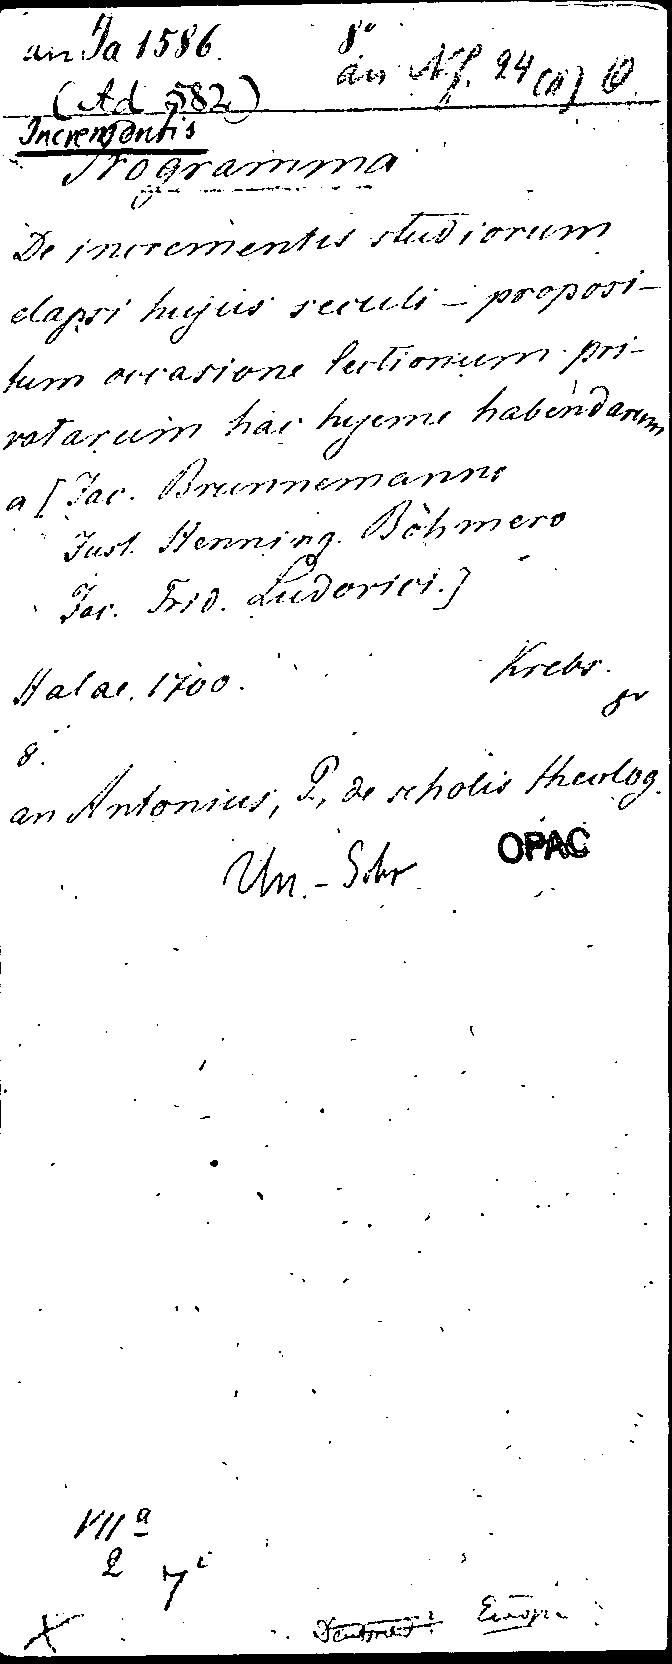 an Ja 1586. 8°
(Ad 582) an Nf. 24 (n)
Incrementis
Programma
De incrementis studiorum
elapsi hujus seculi – proposi-
tum occasione lectionum pri-
vatarum hac hyeme habendarum
a [Jac. Brunnemanno
Just. Henning. Böhmero
Jac. Frid. Ludovici.]
Halae. 1700. Krebs.
8.
an Antonius, P, de scholis theolog.
Un.-Schr OPAC
VII a
2